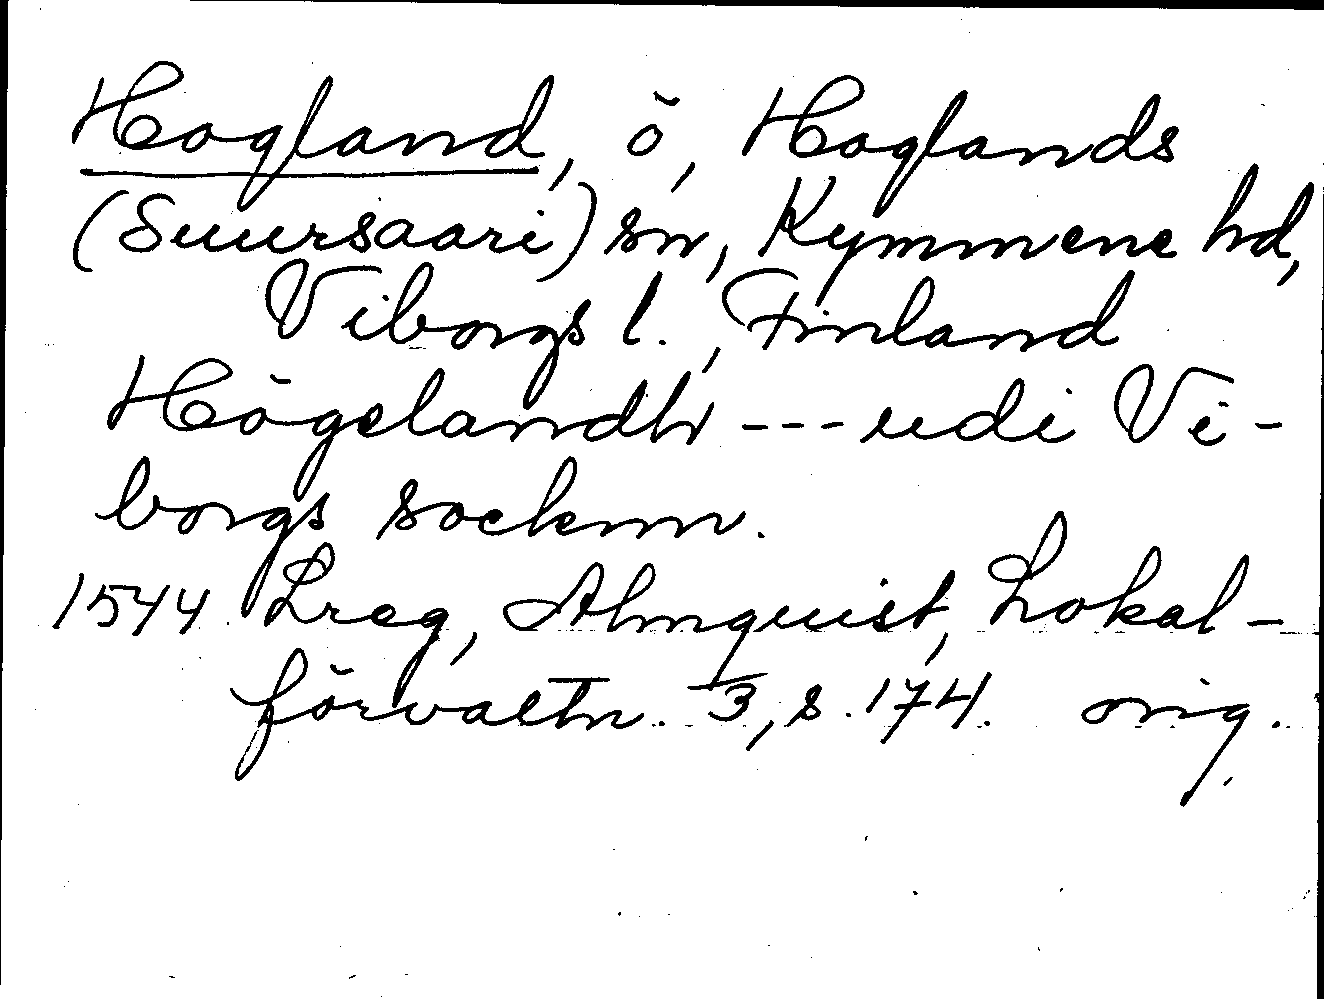 Hogland, ö, Hoglands
(Suursaari) sn, Kymmene hd,
Viborgs l., Finland
Högelandh --- udi Vi-
borgs socknn.
1544 Lreg, Almquist, Lokal-
förvaltn. 3, s. 174. orig.